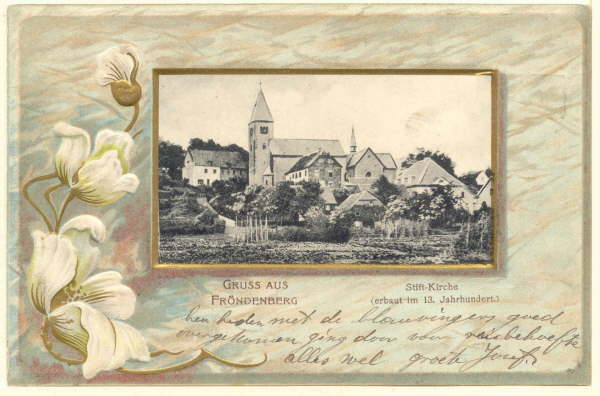 GRUSS AUS
FRÖNDENBERG
Stift-Kirche
(erbaut im 13. Jahrhundert.)
ben heden met de blauvingers goed
overgekomen ging door voor reisbehoefte
alles wel groete Josef.